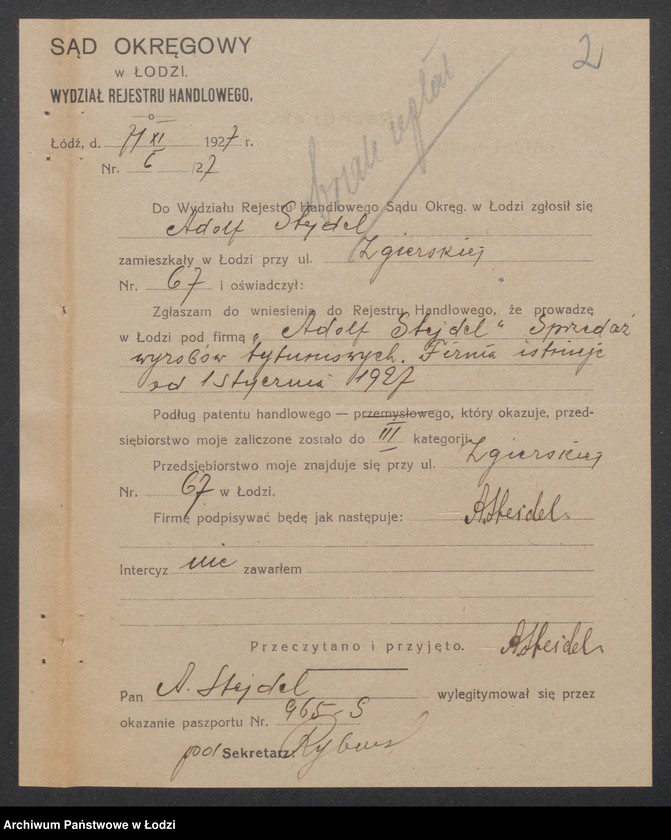 SĄD OKRĘGOWY
w ŁODZI.
WYDZIAŁ REJESTRU HANDLOWEGO.
2
Łódź, d. XI 1927 r.
Nr. 6 /27
Do Wydziału Rejestru Handlowego Sądu Okręg. w Łodzi zgłosił się
Adolf Stejdel
zamieszkały w Łodzi przy ul. Zgierskiej
Nr. 67 i oświadczył:
Zgłaszam do wniesienia do Rejestru Handlowego, że prowadzę
w Łodzi pod firmą „Adolf Stejdel" Sprzedaż
wyrobów tytuniowych. Firma istnieje
od 1 stycznia 1927
Podług patentu handlowego — przemysłowego, który okazuje, przed-
siębiorstwo moje zaliczone zostało do III kategorji.
Przedsiębiorstwo moje znajduje się przy ul. Zgierskiej
Nr. 67 w Łodzi.
Firmę podpisywać będę jak następuje: ASteidel
Intercyz nie zawarłem
Przeczytano i przyjęto. ASteidel
Pan A. Stejdel wylegitymował się przez
okazanie paszportu Nr. 965-S
pod Sekretarz:
Archiwum Państwowe w Łodzi